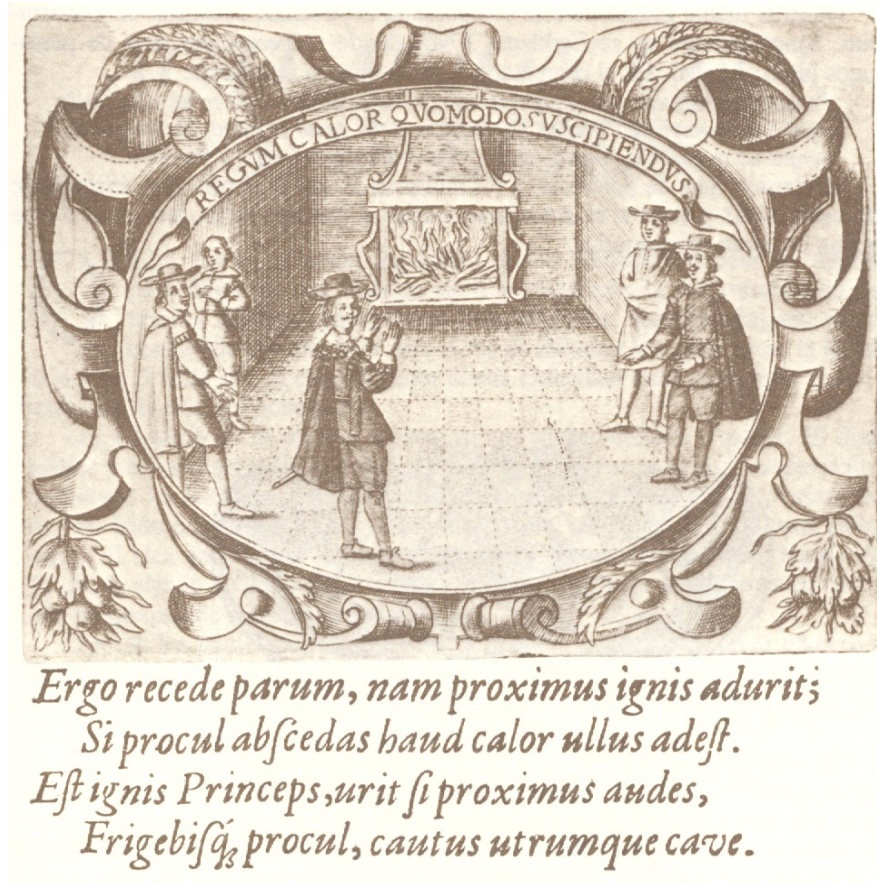 REGVM CALOR QVOMODO SVSCIPIENDVS
Ergo recede parum, nam proximus ignis adurit;
Si procul abſcedas haud calor ullus adeſt.
Eſt ignis Princeps, urit ſi proximus audes,
Frigebiſq́ꝫ procul, cautus utrumque cave.